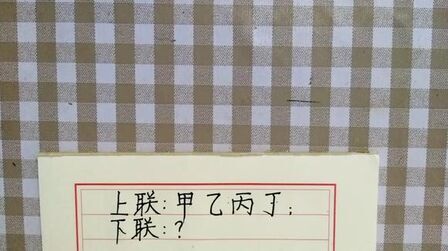 上联:甲乙丙丁;
下联:?